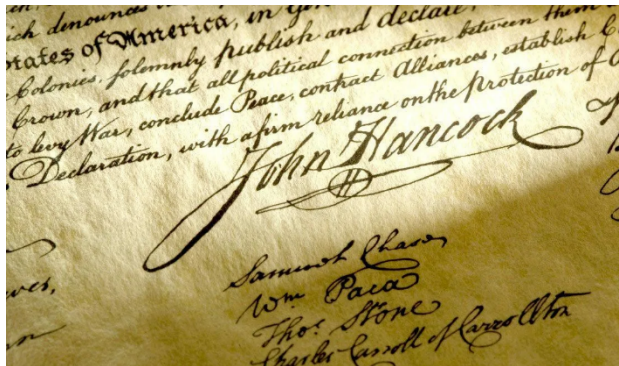 ich denounces
States of America, in Gen
Colonies, solemnly publish and declare,
Crown, and that all political connection between them
to levy War, conclude Peace, contract Alliances, establish Co
Declaration, with a firm reliance on the Protection of
John Hancock
Samuel Chase
Wm Paca
Thos. Stone
Charles Carroll of Carrollton